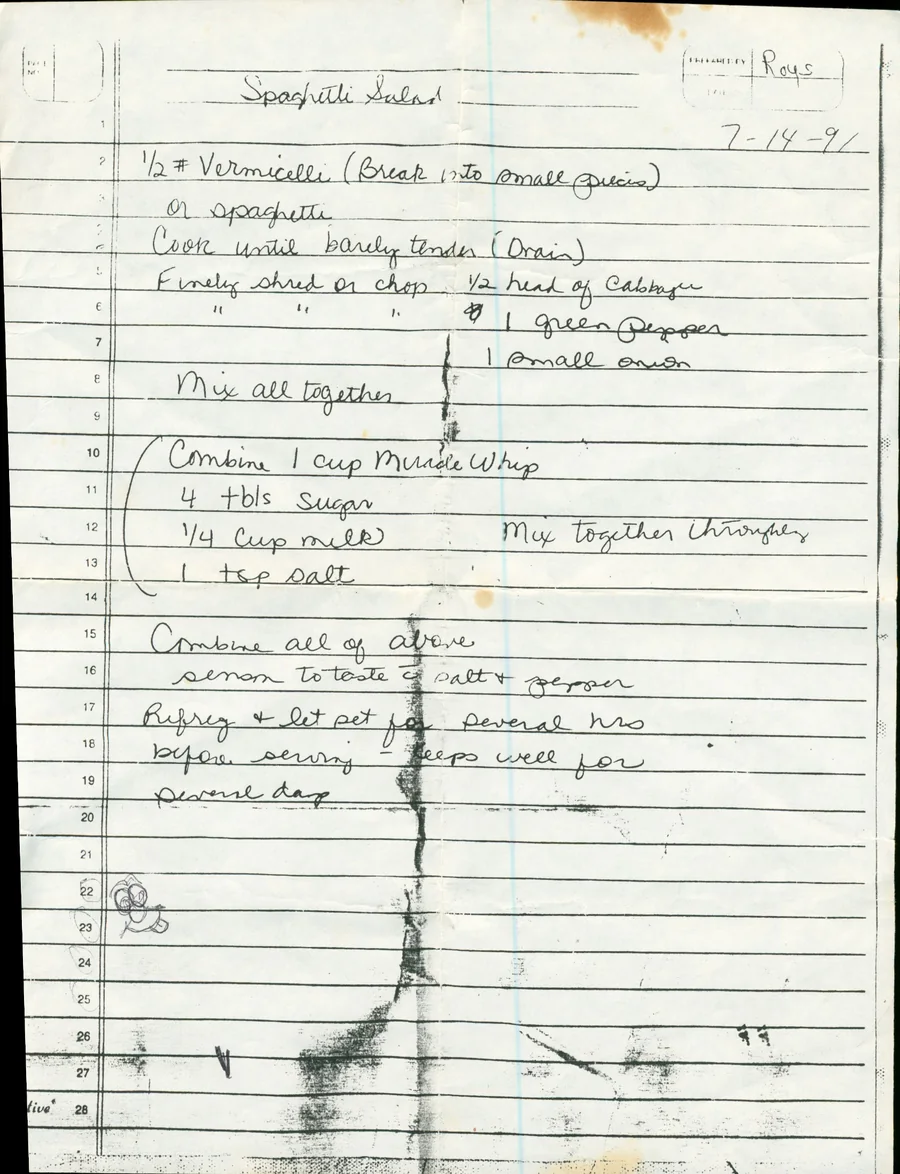 PREPARED BY Roys
Spaghetti Salad
7-14-91
1/2 # Vermicelli (Break into small pieces)
or spaghetti
Cook until barely tender (Drain)
Finely shred or chop 1/2 head of Cabbage
" " " 1 green pepper
1 small onion
Mix all together
Combine 1 cup Miracle Whip
4 tbls sugar
1/4 cup milk Mix together throughly
1 tsp salt
Combine all of above
season to taste c̄ salt + pepper
Refreg + let set for several hrs
before serving - keeps well for
several days
1
2
5
6
7
8
9
10
11
12
13
14
15
16
17
18
19
20
21
22
23
24
25
26
27
28